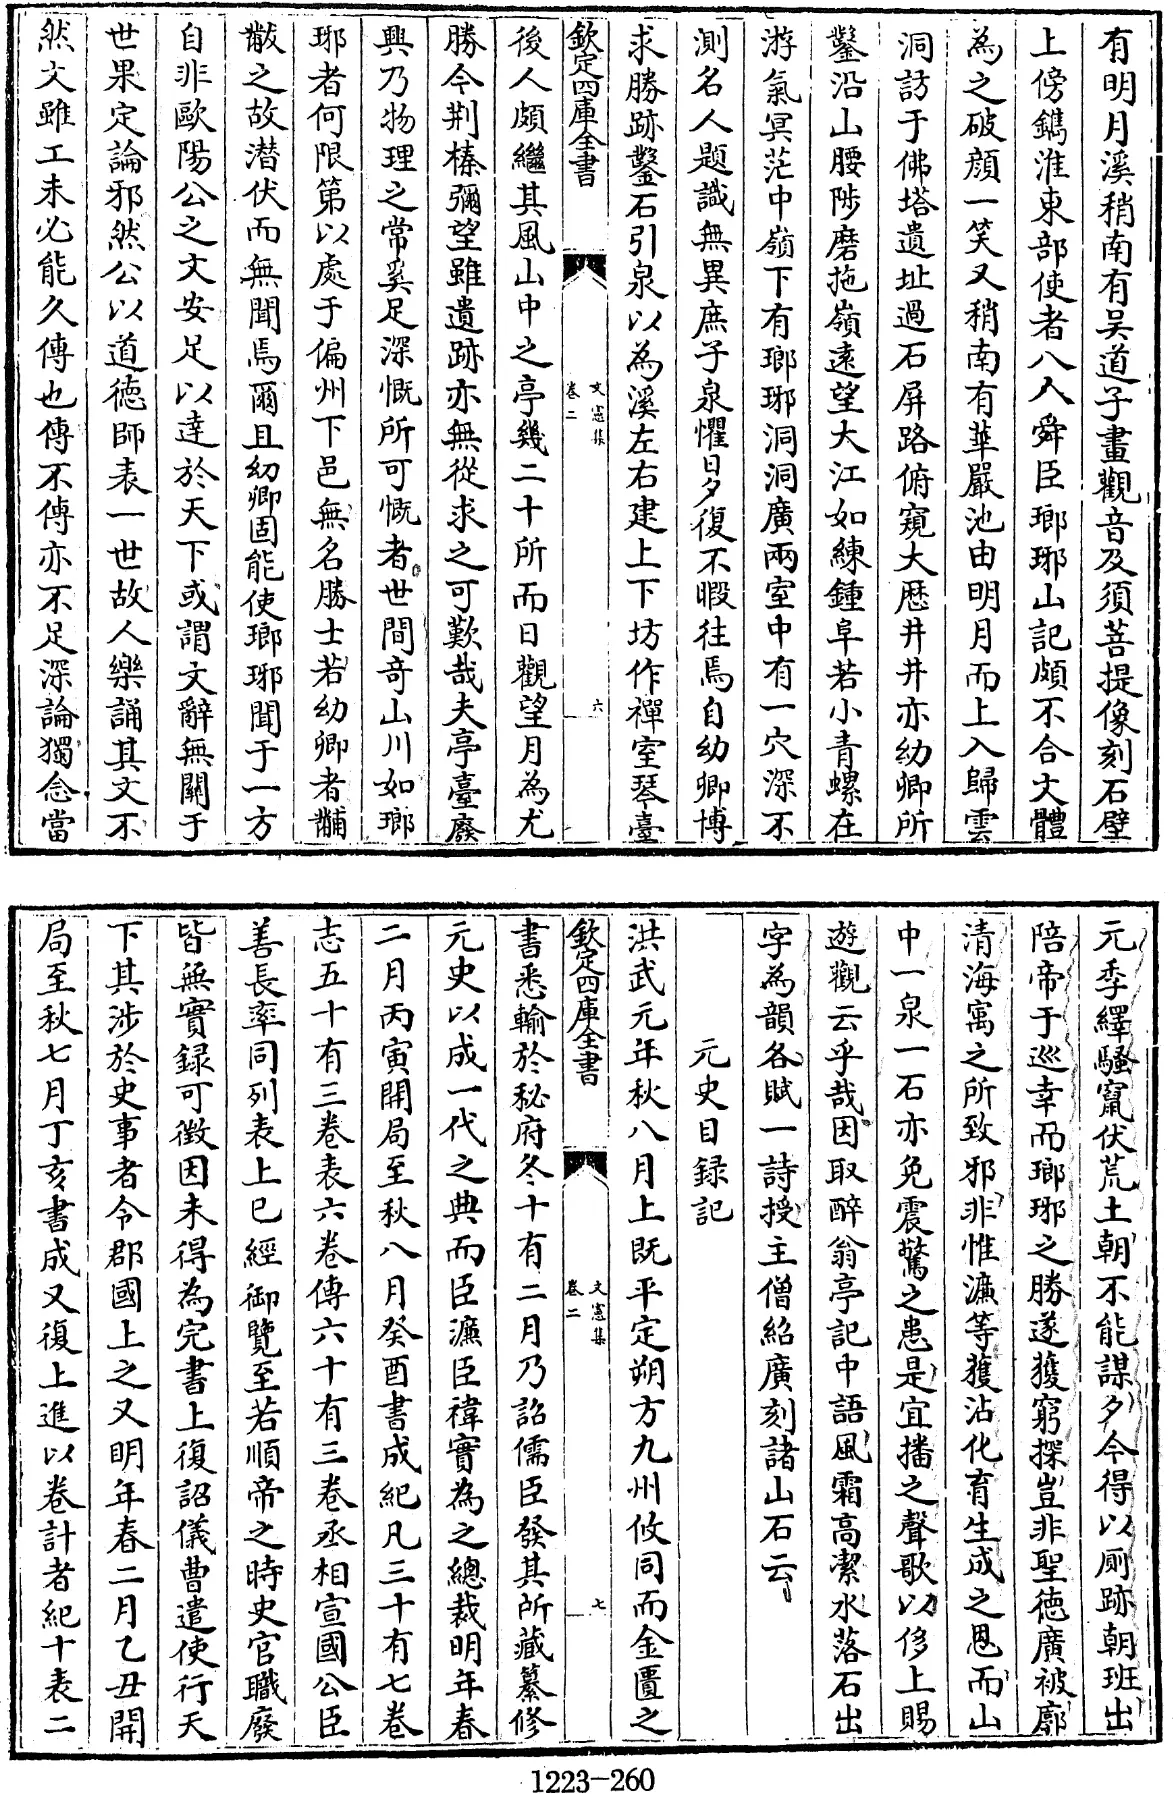 有明月溪稍南有吴道子畫觀音及須菩提像刻石壁
上傍鐫淮東部使者八人舜臣瑯琊山記頗不合文體
為之破顔一笑又稍南有華嚴池由明月而上入歸雲
洞訪于佛塔遺址過石屏路俯窺大歴井井亦幼卿所
鑿沿山腰陟磨拖嶺遠望大江如練鍾阜若小青螺在
游氣冥茫中嶺下有瑯琊洞洞廣兩室中有一穴深不
測名人題識無異庶子泉懼日夕復不暇往焉自幼卿博
求勝跡鑿石引泉以為溪左右建上下坊作禪室琴臺
欽定四庫全書
文憲集
卷二
六
後人頗繼其風山中之亭幾二十所而日觀望月為尤
勝今荆榛彌望雖遺跡亦無從求之可歎哉夫亭臺廢
興乃物理之常奚足深慨所可慨者世間奇山川如瑯
琊者何限第以處于偏州下邑無名勝士若幼卿者黼
黻之故潜伏而無聞焉爾且幼卿固能使瑯琊聞于一方
自非歐陽公之文安足以達於天下或謂文辭無關于
世果定論邪然公以道德師表一世故人樂誦其文不
然文雖工未必能久傳也傳不傳亦不足深論獨念當
元季繹騷竄伏荒土朝不能謀夕今得以厠跡朝班出
陪帝于巡幸而瑯琊之勝遂獲窮探豈非聖德廣被廓
清海寓之所致邪非惟濂等獲沾化育生成之恩而山
中一泉一石亦免震驚之患是宜播之聲歌以侈上賜
遊觀云乎哉因取醉翁亭記中語風霜高潔水落石出
字為韻各賦一詩授主僧紹廣刻諸山石云
元史目録記
洪武元年秋八月上既平定朔方九州攸同而金匱之
欽定四庫全書
文憲集
卷二
七
書悉輸於秘府冬十有二月乃詔儒臣發其所藏纂修
元史以成一代之典而臣濂臣禕實為之總裁明年春
二月丙寅開局至秋八月癸酉書成紀凡三十有七卷
志五十有三卷表六卷傳六十有三卷丞相宣國公臣
善長率同列表上已經御覽至若順帝之時史官職廢
皆無實録可徵因未得為完書上復詔儀曹遣使行天
下其涉於史事者令郡國上之又明年春二月乙丑開
局至秋七月丁亥書成又復上進以卷計者紀十表二
1223-260